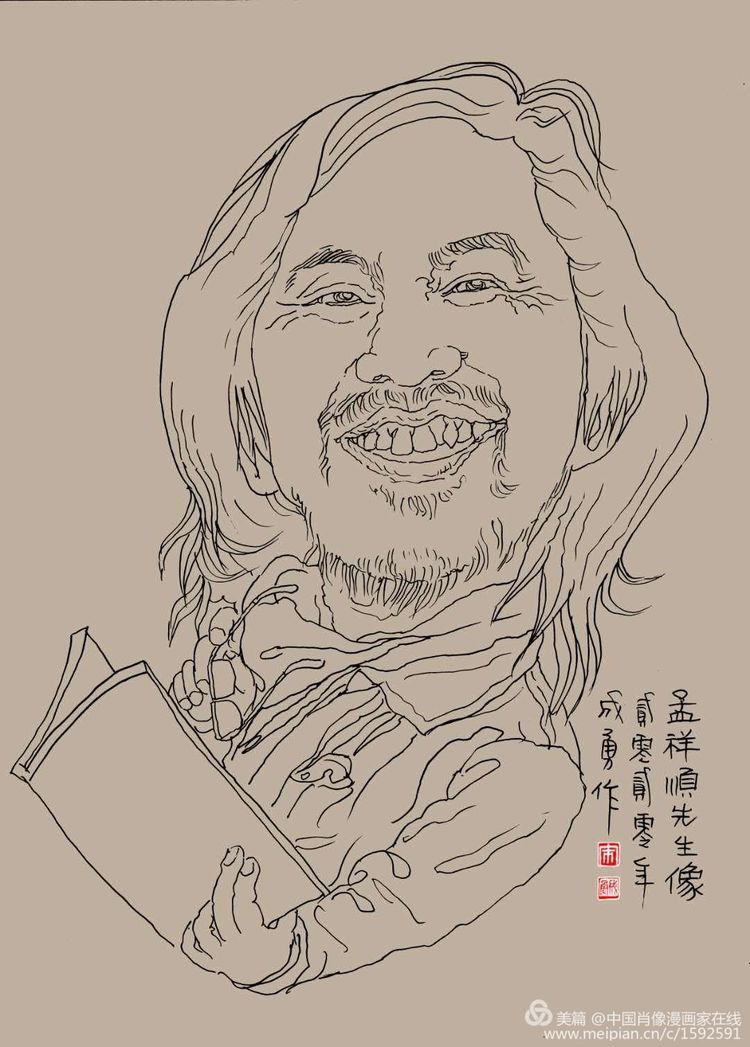 孟祥順先生像
貳零貳零年
成勇作
美篇 @中国肖像漫画家在线
www.meipian.cn/c/1592591